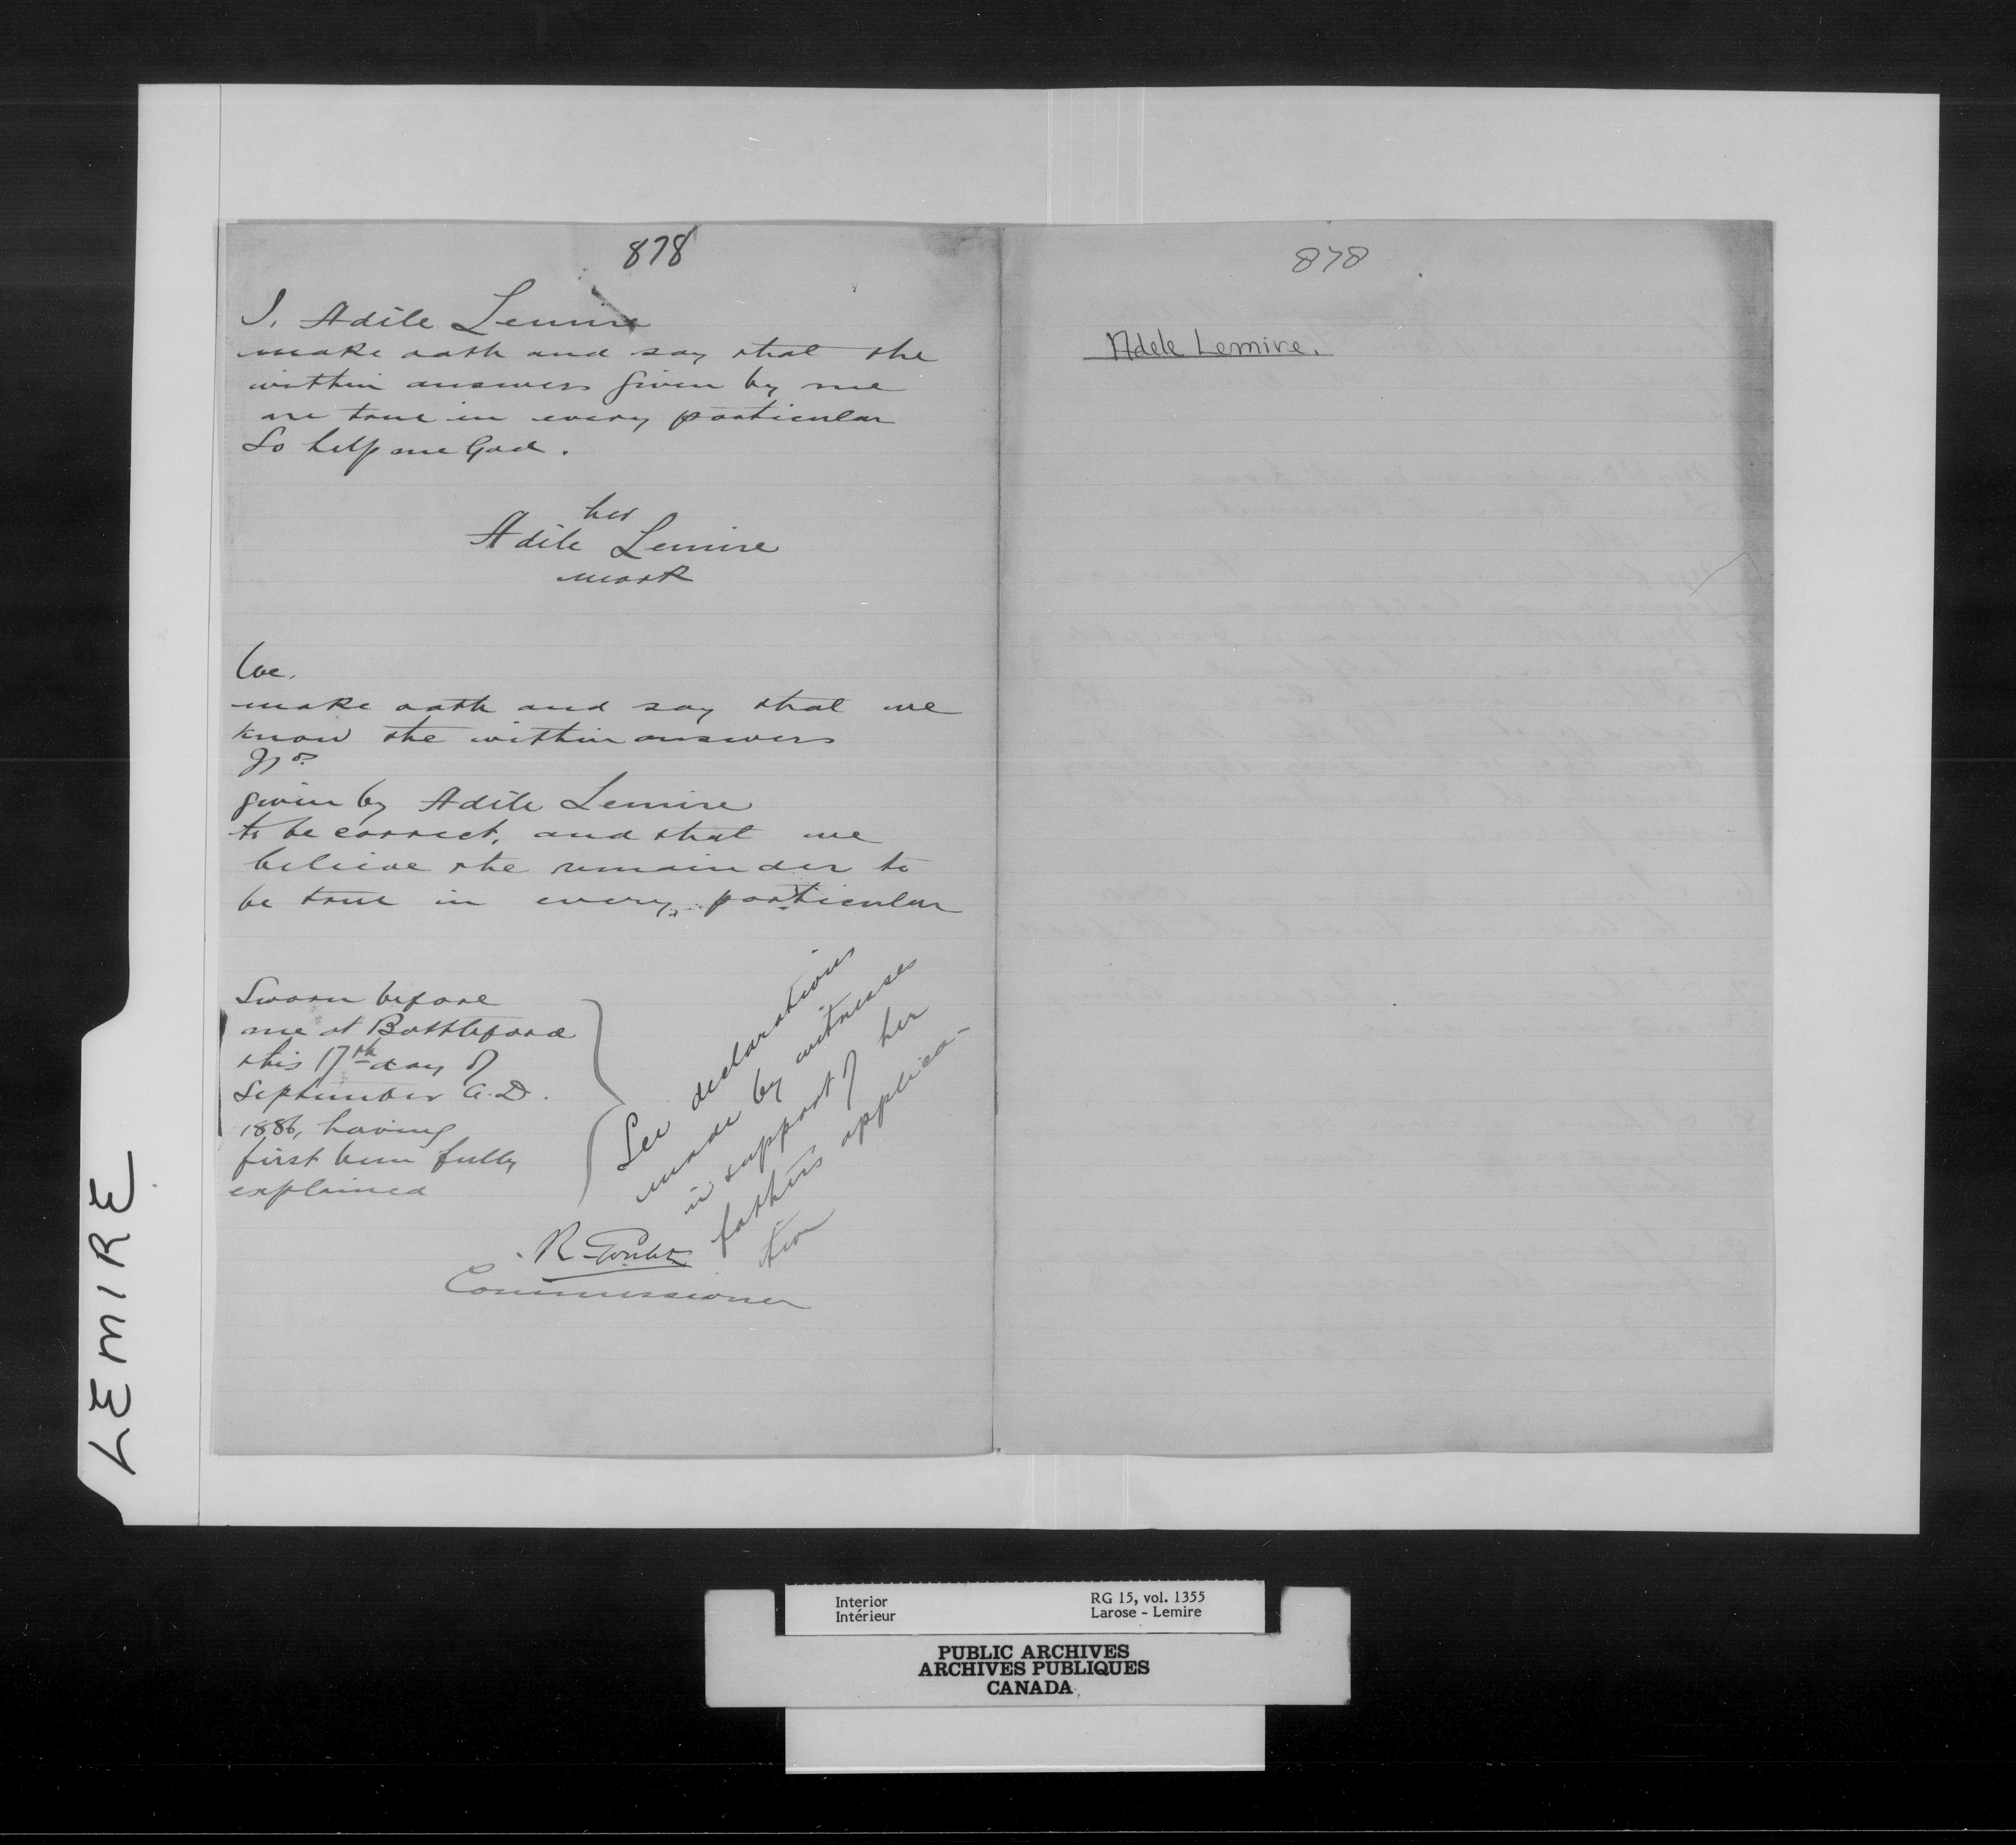 878
I, Adèle Lemire
make oath and say that the
within answers given by me
are true in every particular
So help me God.
her
Adèle Lemire
mark
We,
make oath and say that we
know the within answers
given by Adèle Lemire
to be correct, and that we
believe the remainder to
be true in every particular
Sworn before
me at Battleford
this 17th day of
September A.D.
1886, having
first been fully
explained
See declarations
made by witnesses
in support of her
fathers applica-
tion
R Goulet
Commissioner
878
Adele Lemire.
LEMIRE
Interior
Intérieur
RG 15, vol. 1355
Larose - Lemire
PUBLIC ARCHIVES
ARCHIVES PUBLIQUES
CANADA